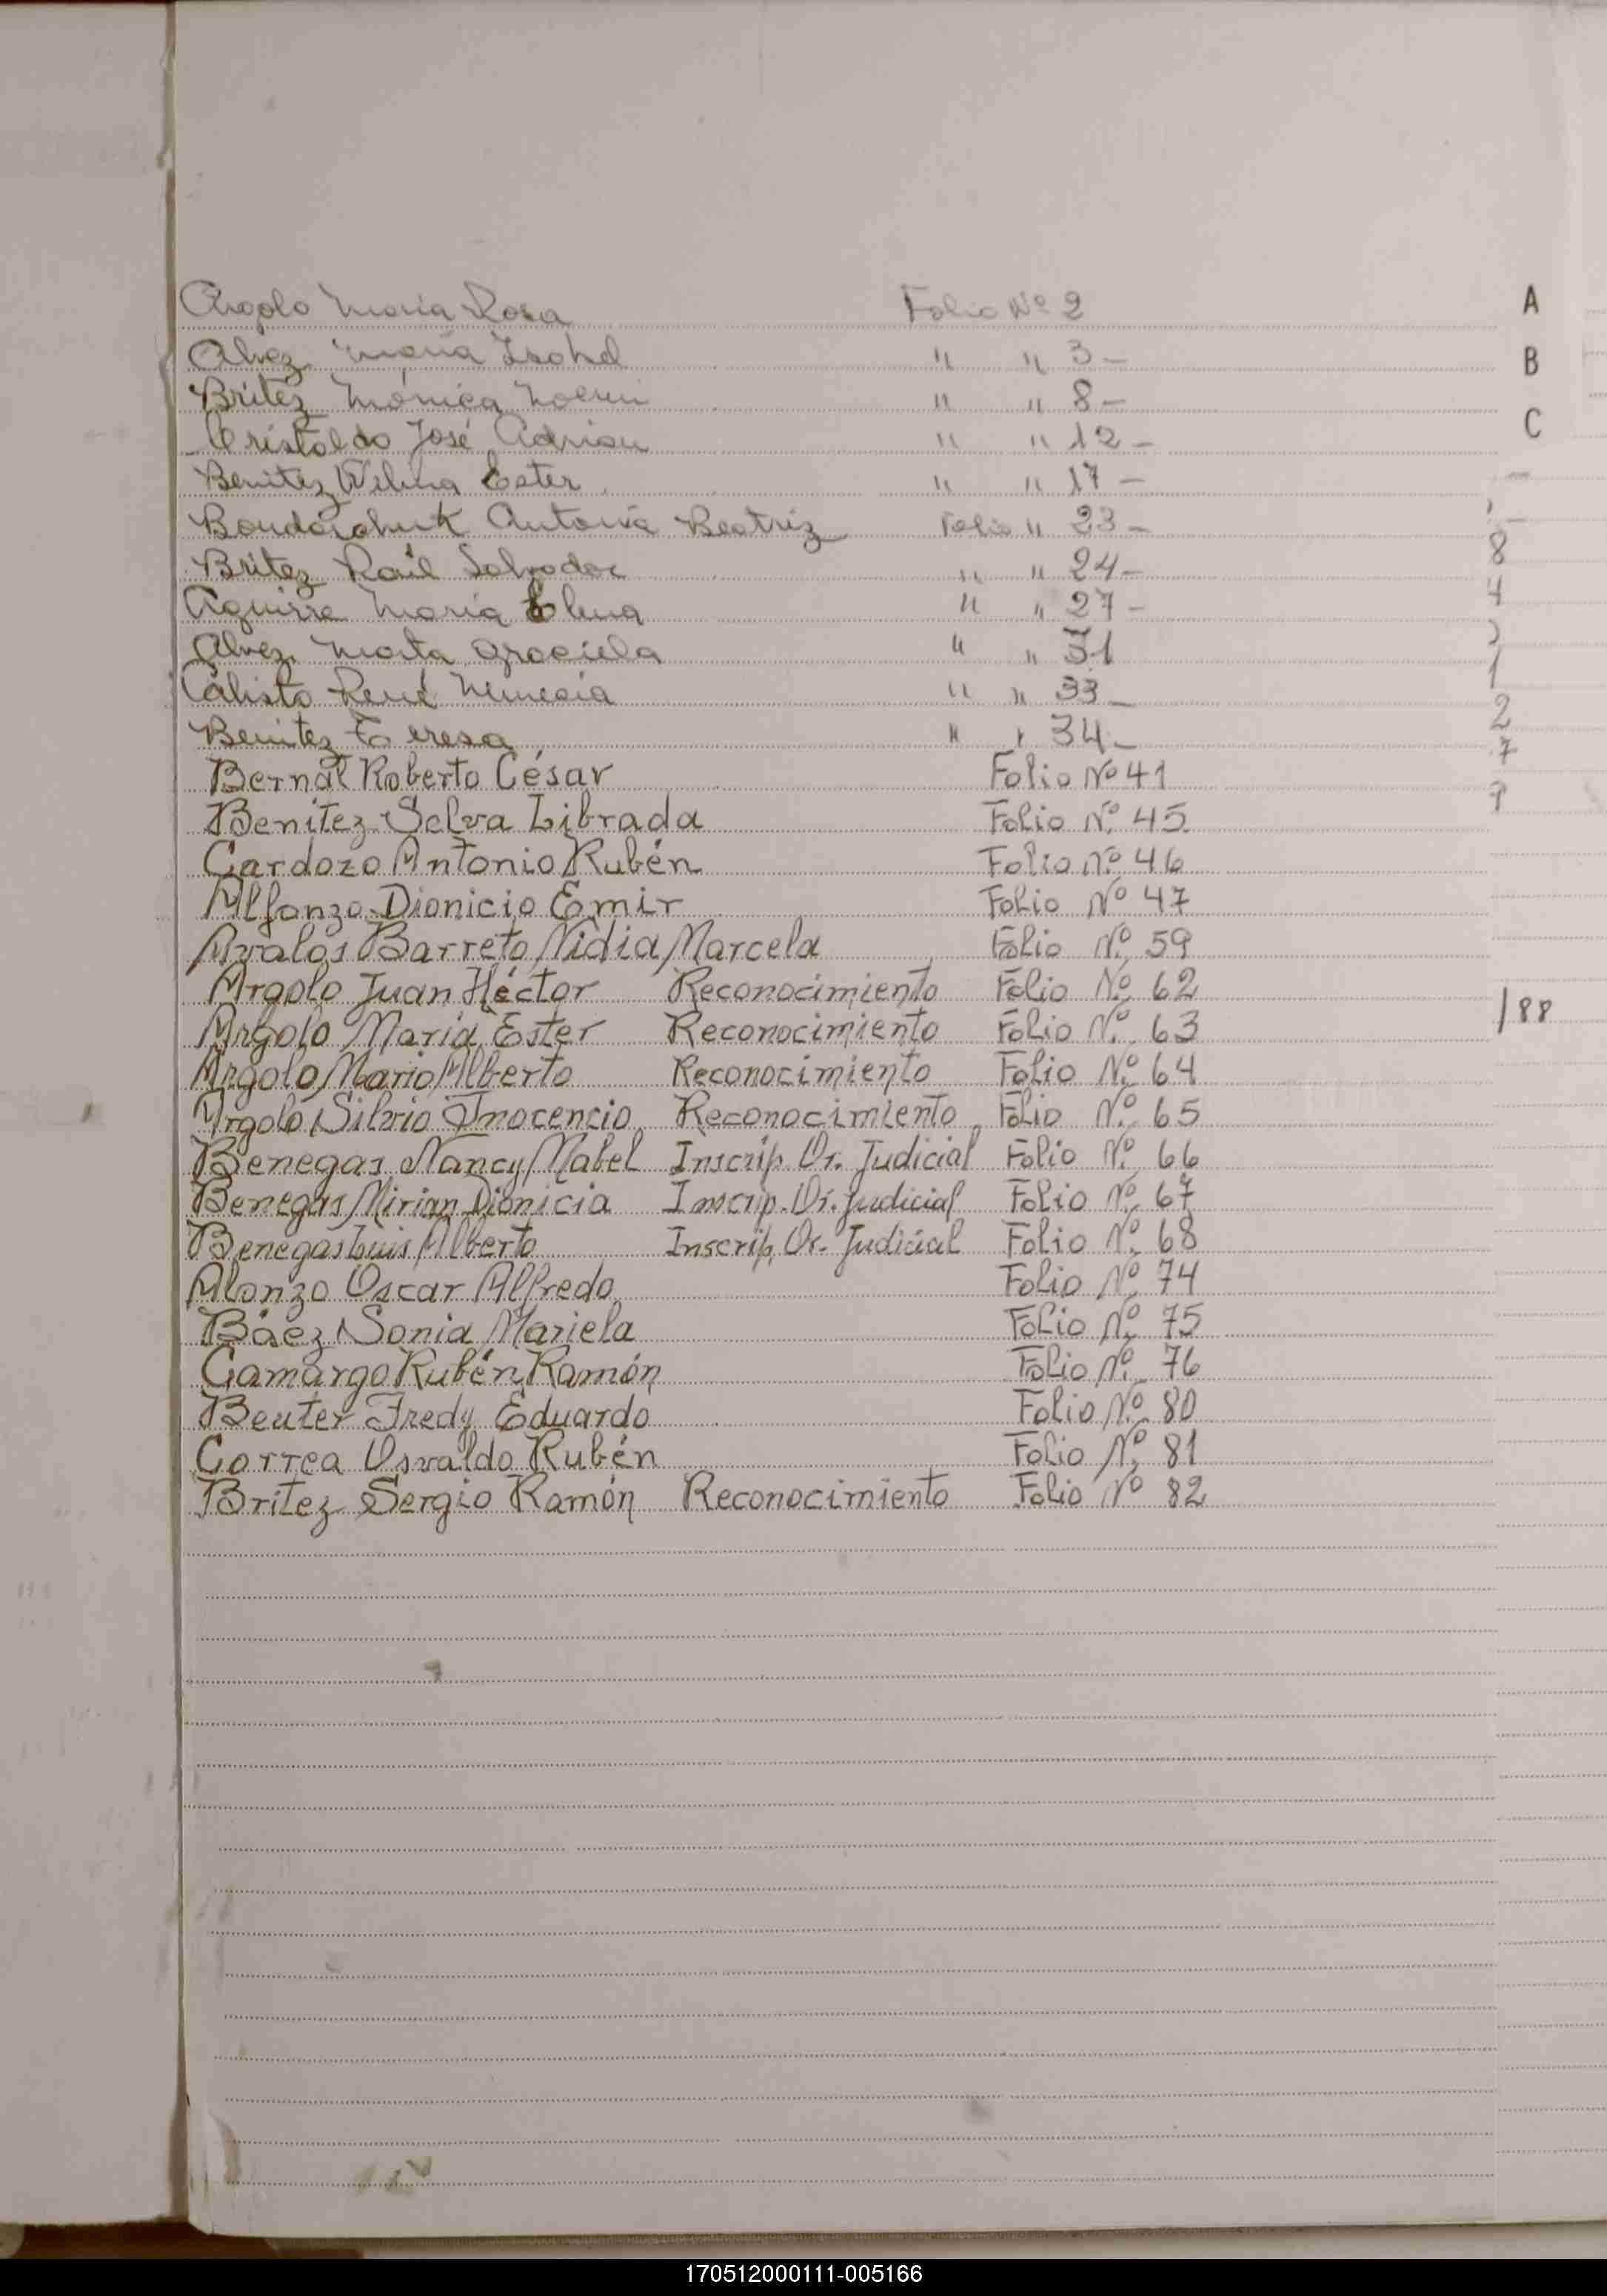 Argolo Maria Rosa Folio Nº 2
A
Alvez Maria Isabel " " 3 -
B
Britez Mónica Noemi " " 8 -
Cristaldo José Adrian " " 12 -
C
Benitez Wilma Ester " " 17 -
Bondarchuk Antonia Beatriz Folio " 23 -
Britez Raúl Salvador " " 24 -
8
Aguirre María Elena " " 27 -
4
Alvez Marta Graciela " " 31
1
Calisto René Nemecia " " 33 -
2
Benitez Teresa " " 34 -
7
Bernal Roberto César Folio Nº 41
Benitez Selva Librada Folio Nº 45
Cardozo Antonio Rubén Folio Nº 46
Alfonzo Dionicio Emir Folio Nº 47
Avalos Barreto Nidia Marcela Folio Nº 59
Argolo Juan Héctor Reconocimiento Folio Nº 62
/88
Argolo María Ester Reconocimiento Folio Nº 63
Argolo Mario Alberto Reconocimiento Folio Nº 64
Argolo Silvio Inocencio Reconocimiento Folio Nº 65
Benegas Nancy Mabel Inscrip. Or. Judicial Folio Nº 66
Benegas Mirian Dionicia Inscrip. Or. Judicial Folio Nº 67
Benegas Luis Alberto Inscrip. Or. Judicial Folio Nº 68
Alonzo Oscar Alfredo Folio Nº 74
Báez Sonia Mariela Folio Nº 75
Camargo Rubén Ramón Folio Nº 76
Beuter Fredy Eduardo Folio Nº 80
Correa Osvaldo Rubén Folio Nº 81
Britez Sergio Ramón Reconocimiento Folio Nº 82
170512000111-005166